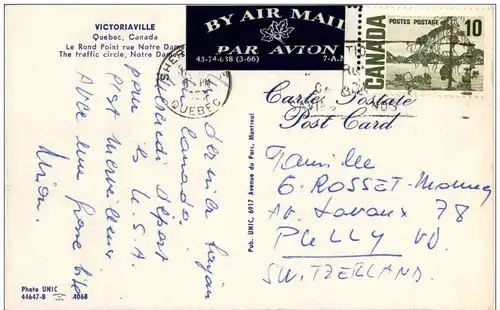 VICTORIAVILLE
Quebec, Canada
Le Rond Point rue Notre Dame
The traffic circle, Notre Dame
BY AIR MAIL
PAR AVION
43-74-038 (3-66) 7-A
POSTES POSTAGE
10
CANADA
QUEBEC
Carte Postale
Post Card
Canada.
départ
pour les U.S.A.
c'est merveilleux
Avec une grosse bise
Pub. UNIC, 6917 Avenue du Parc, Montreal
Famille
G. ROSSET
Av. Lavaux 78
Pully VD.
SWITZERLAND.
Photo UNIC
44647-B 4068